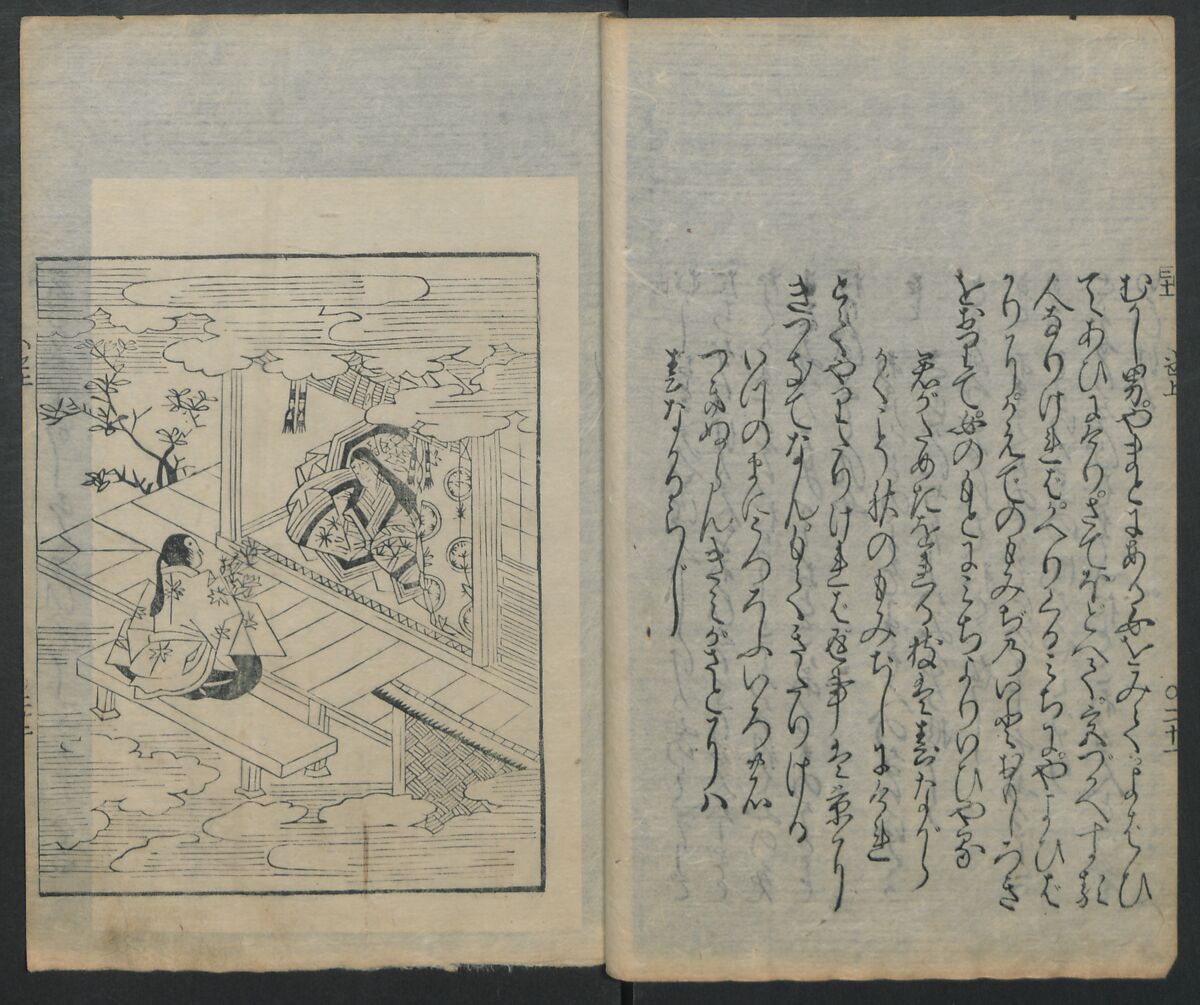 むかし男やまとにある女をみてよばひ
てあひにけりさてほどへて宮づかへする
人なりければかへりくるみちにやよひば
かりにかえでのもみぢのいとおもしろき
をおりて女のもとにみちよりいひやる
君がためたをれる枝は春ながら
かくこそ秋のもみぢしにけれ
とてやりたりければ返事は京に
きつきてなんもてきたりける
いつのまにうつろふいろの
つきぬらんきみがさとには
春なかるらし